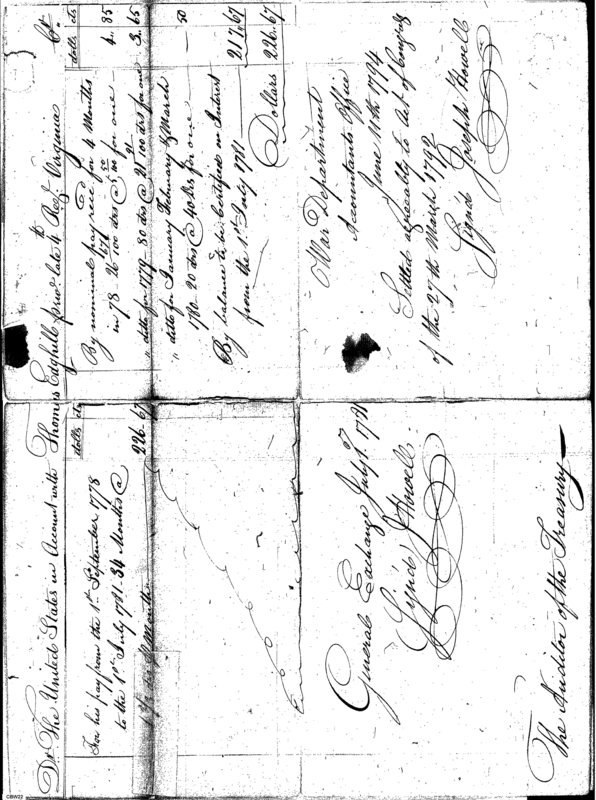 Dr. The United States in Account with Thomas Edghill priv. late 4th Reg. Virginia Cr.
dolls cts
For his pay from the 1st September 1778
to the 1st July 1781. 34 Months @
6 2/3 dollars Month 226.67
dolls cts
By nominal pay rece for 4 Months
in 78 - 26 dos @ for one - 4.85
" ditto for 1779 - 80 dos @ 21 for one 3.65
" ditto for January February & March
1780 - 20 dos @ 40 dos for one - - 50
By balance to be Certified on Interest
from the 1st July 1781 217.67
Dollars 226.67
General Exchange July 1st 1791
Signd J Howell.
War Department
Accountants Office
June 11th. 1794
Settled agreeably to Act of Congress
of the 27th March 1792
Signd Joseph Howell
The Auditor of the Treasury
CBW22